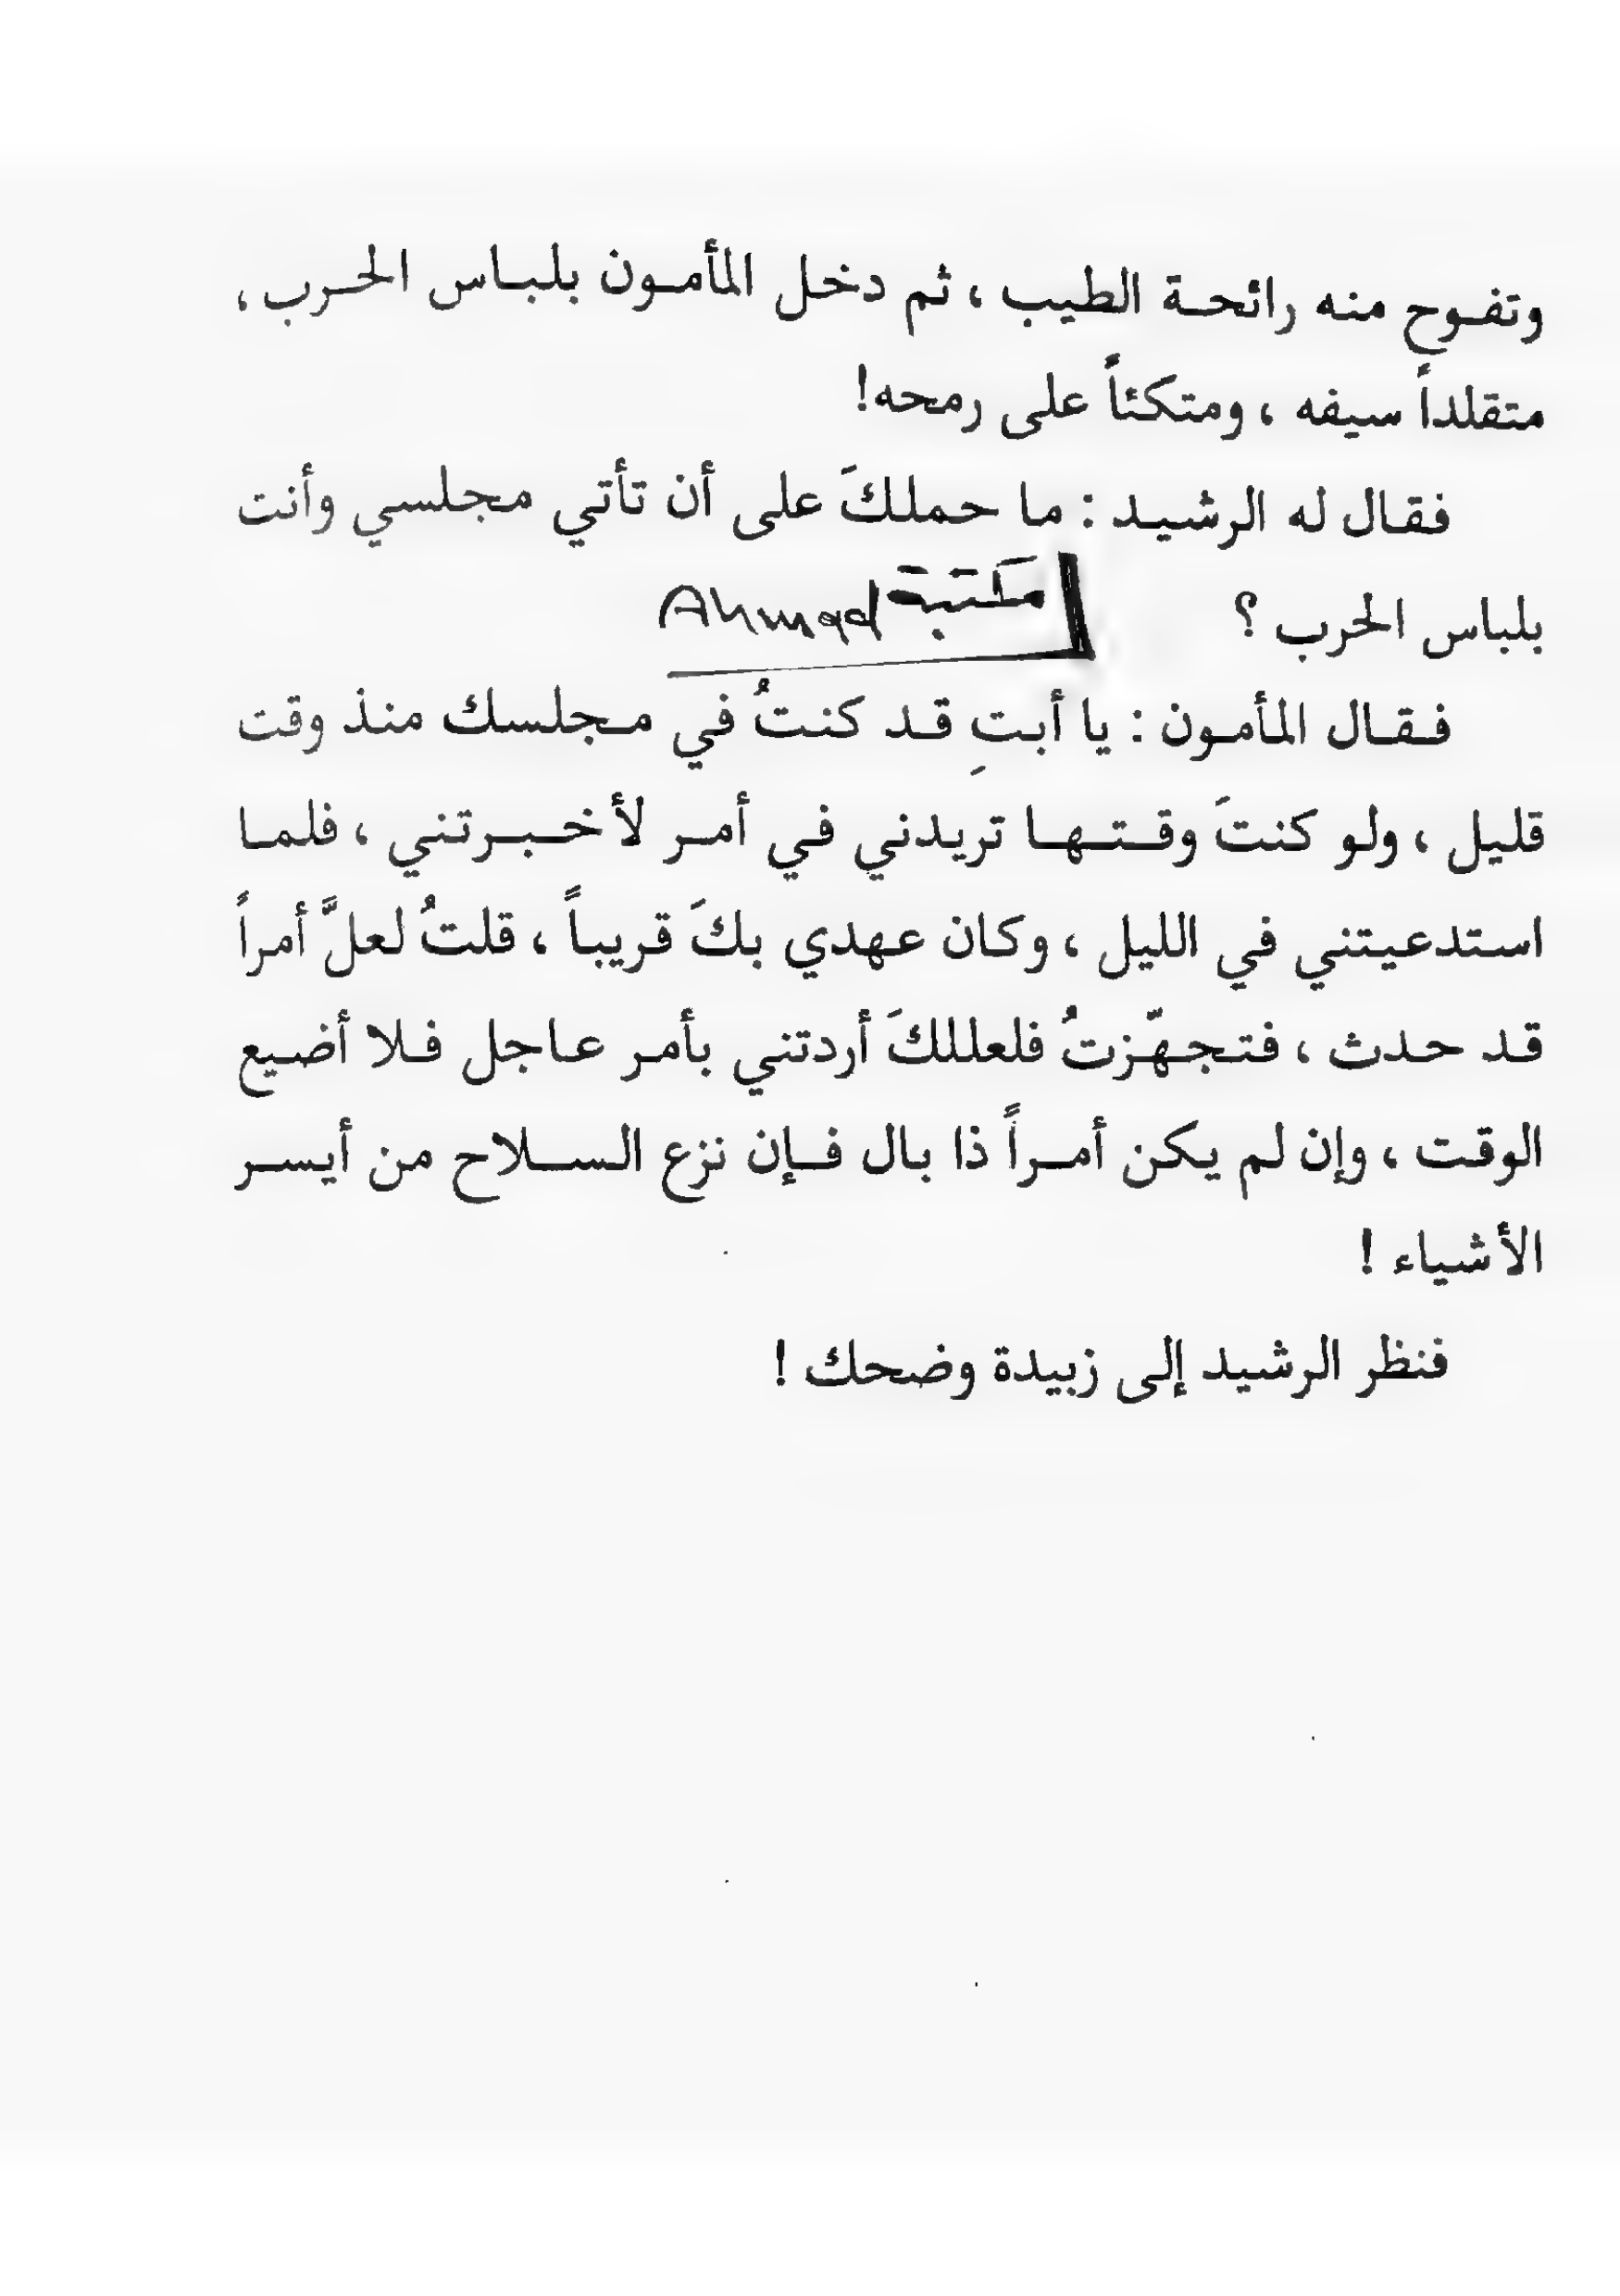 وتفوح منه رائحة الطيب ، ثم دخل المأمون بلباس الحرب ،
متقلداً سيفه ، ومتكئاً على رمحه!
فقال له الرشيد : ما حملكَ على أن تأتي مجلسي وأنت
بلباس الحرب ؟
مكتبة Ahmad
فقال المأمون : يا أبتِ قد كنتُ في مجلسك منذ وقت
قليل ، ولو كنتَ وقتها تريدني في أمر لأخبرتني ، فلما
استدعيتني في الليل ، وكان عهدي بكَ قريباً ، قلتُ لعلَّ أمراً
قد حدث ، فتجهّزتُ فلعللكَ أردتني بأمر عاجل فلا أضيع
الوقت ، وإن لم يكن أمراً ذا بال فإن نزع السلاح من أيسر
الأشياء !
فنظر الرشيد إلى زبيدة وضحك !